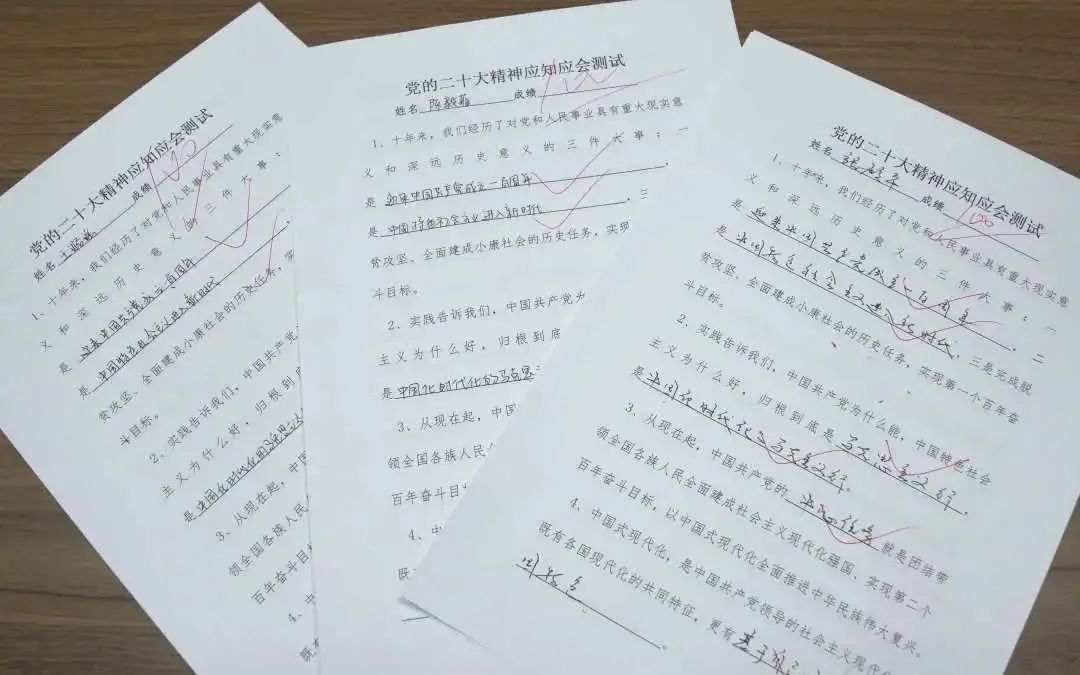 党的二十大精神应知应会测试
姓名 成绩
1、十年来,我们经历了对党和人民事业具有重大现实意
义和深远历史意义的三件大事:一
是迎来中国共产党成立一百周年
是中国特色社会主义进入新时代
贫攻坚、全面建成小康社会的历史任务,实
斗目标。
2、实践告诉我们,中国共产党
主义为什么好,归根到底
是中国化时代化的马克思主义
3、从现在起,中国
领全国各族人民
百年奋斗目标
4、中
既有
党的二十大精神应知应会测试
姓名 陈毅菲 成绩 100
1、十年来,我们经历了对党和人民事业具有重大现实意
义和深远历史意义的三件大事:一
是迎来中国共产党成立一百周年
是中国特色社会主义进入新时代,三
贫攻坚、全面建成小康社会的历史任务,实现
斗目标。
2、实践告诉我们,中国共产党为
主义为什么好,归根到底
是中国化时代化的马克思
3、从现在起,中国
领全国各族人民全
百年奋斗目
4、中
既
党的二十大精神应知应会测试
姓名 成绩 100
1、十年来,我们经历了对党和人民事业具有重大现实意
义和深远历史意义的三件大事:一
是迎来中国共产党成立一百周年,二
是中国特色社会主义进入新时代,三是完成脱
贫攻坚、全面建成小康社会的历史任务,实现第一个百年奋
斗目标。
2、实践告诉我们,中国共产党为什么能,中国特色社会
主义为什么好,归根到底是马克思主义行,
是中国化时代化的马克思主义行。
3、从现在起,中国共产党的中心任务就是团结带
领全国各族人民全面建成社会主义现代化强国、实现第二个
百年奋斗目标,以中国式现代化全面推进中华民族伟大复兴。
4、中国式现代化,是中国共产党领导的社会主义现代化
既有各国现代化的共同特征,更有基于自己
国特色